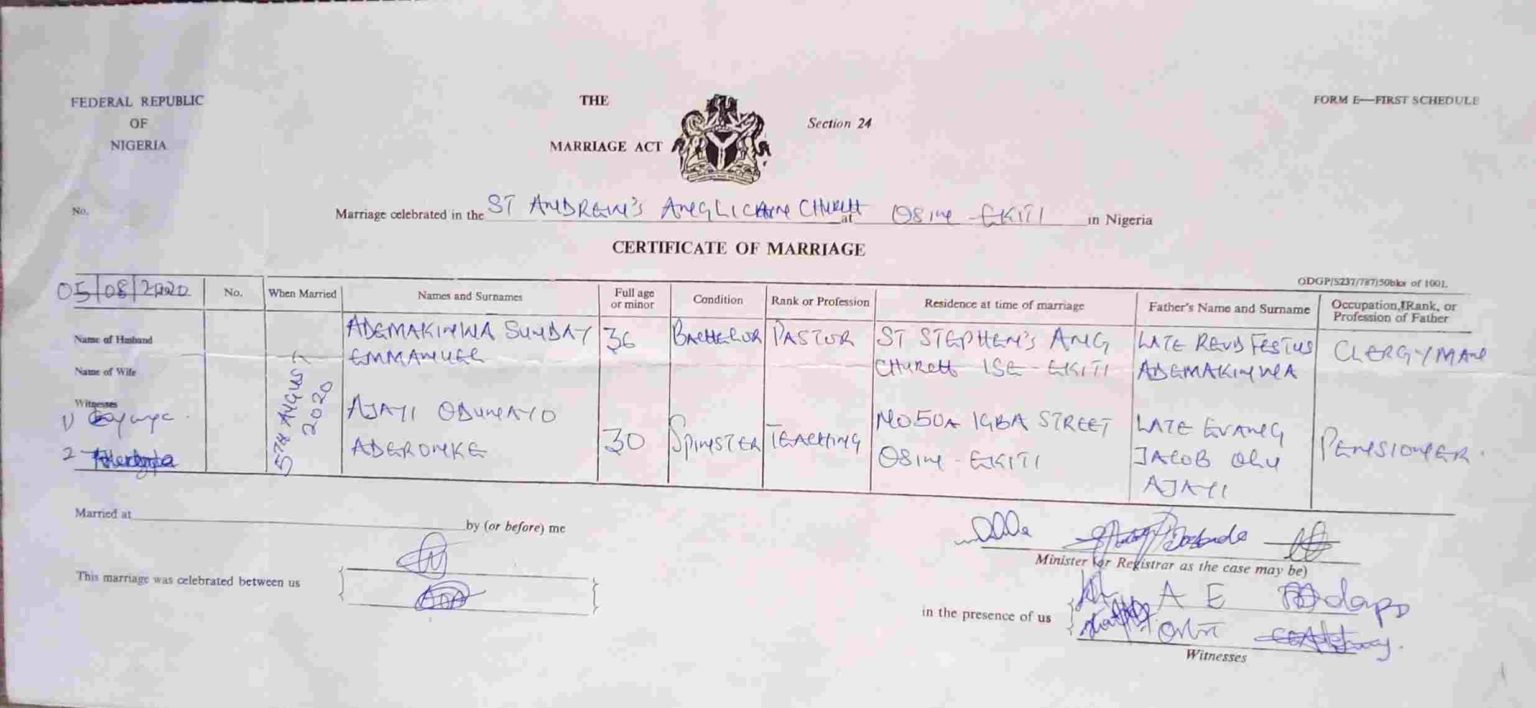 FEDERAL REPUBLIC
OF
NIGERIA
THE
MARRIAGE ACT
Section 24
FORM E—FIRST SCHEDULE
No.
Marriage celebrated in the ST ANDREW'S ANGLICAN CHURCH at OSIN - EKITI in Nigeria
CERTIFICATE OF MARRIAGE
ODGP(S237/787)50bks of 100L
05/08/2020
No.
When Married
Names and Surnames
Full age or minor
Condition
Rank or Profession
Residence at time of marriage
Father's Name and Surname
Occupation, Rank, or Profession of Father
Name of Husband
5TH AUGUST 2020
ADEMAKINWA SUNDAY
EMMANUEL
36
BACHELOR
PASTOR
ST STEPHEN'S ANG
CHURCH ISE - EKITI
LATE REVD FESTUS
ADEMAKINWA
CLERGYMAN
Name of Wife
AJAYI ODUNAYO
ADERONKE
30
SPINSTER
TEACHING
NO50A IGBA STREET
OSIN - EKITI
LATE EVANG
JACOB OLU
AJAYI
PENSIONER.
Witnesses
1)
2
Married at
by (or before) me
Minister (or Registrar as the case may be)
This marriage was celebrated between us
in the presence of us
A E
Witnesses